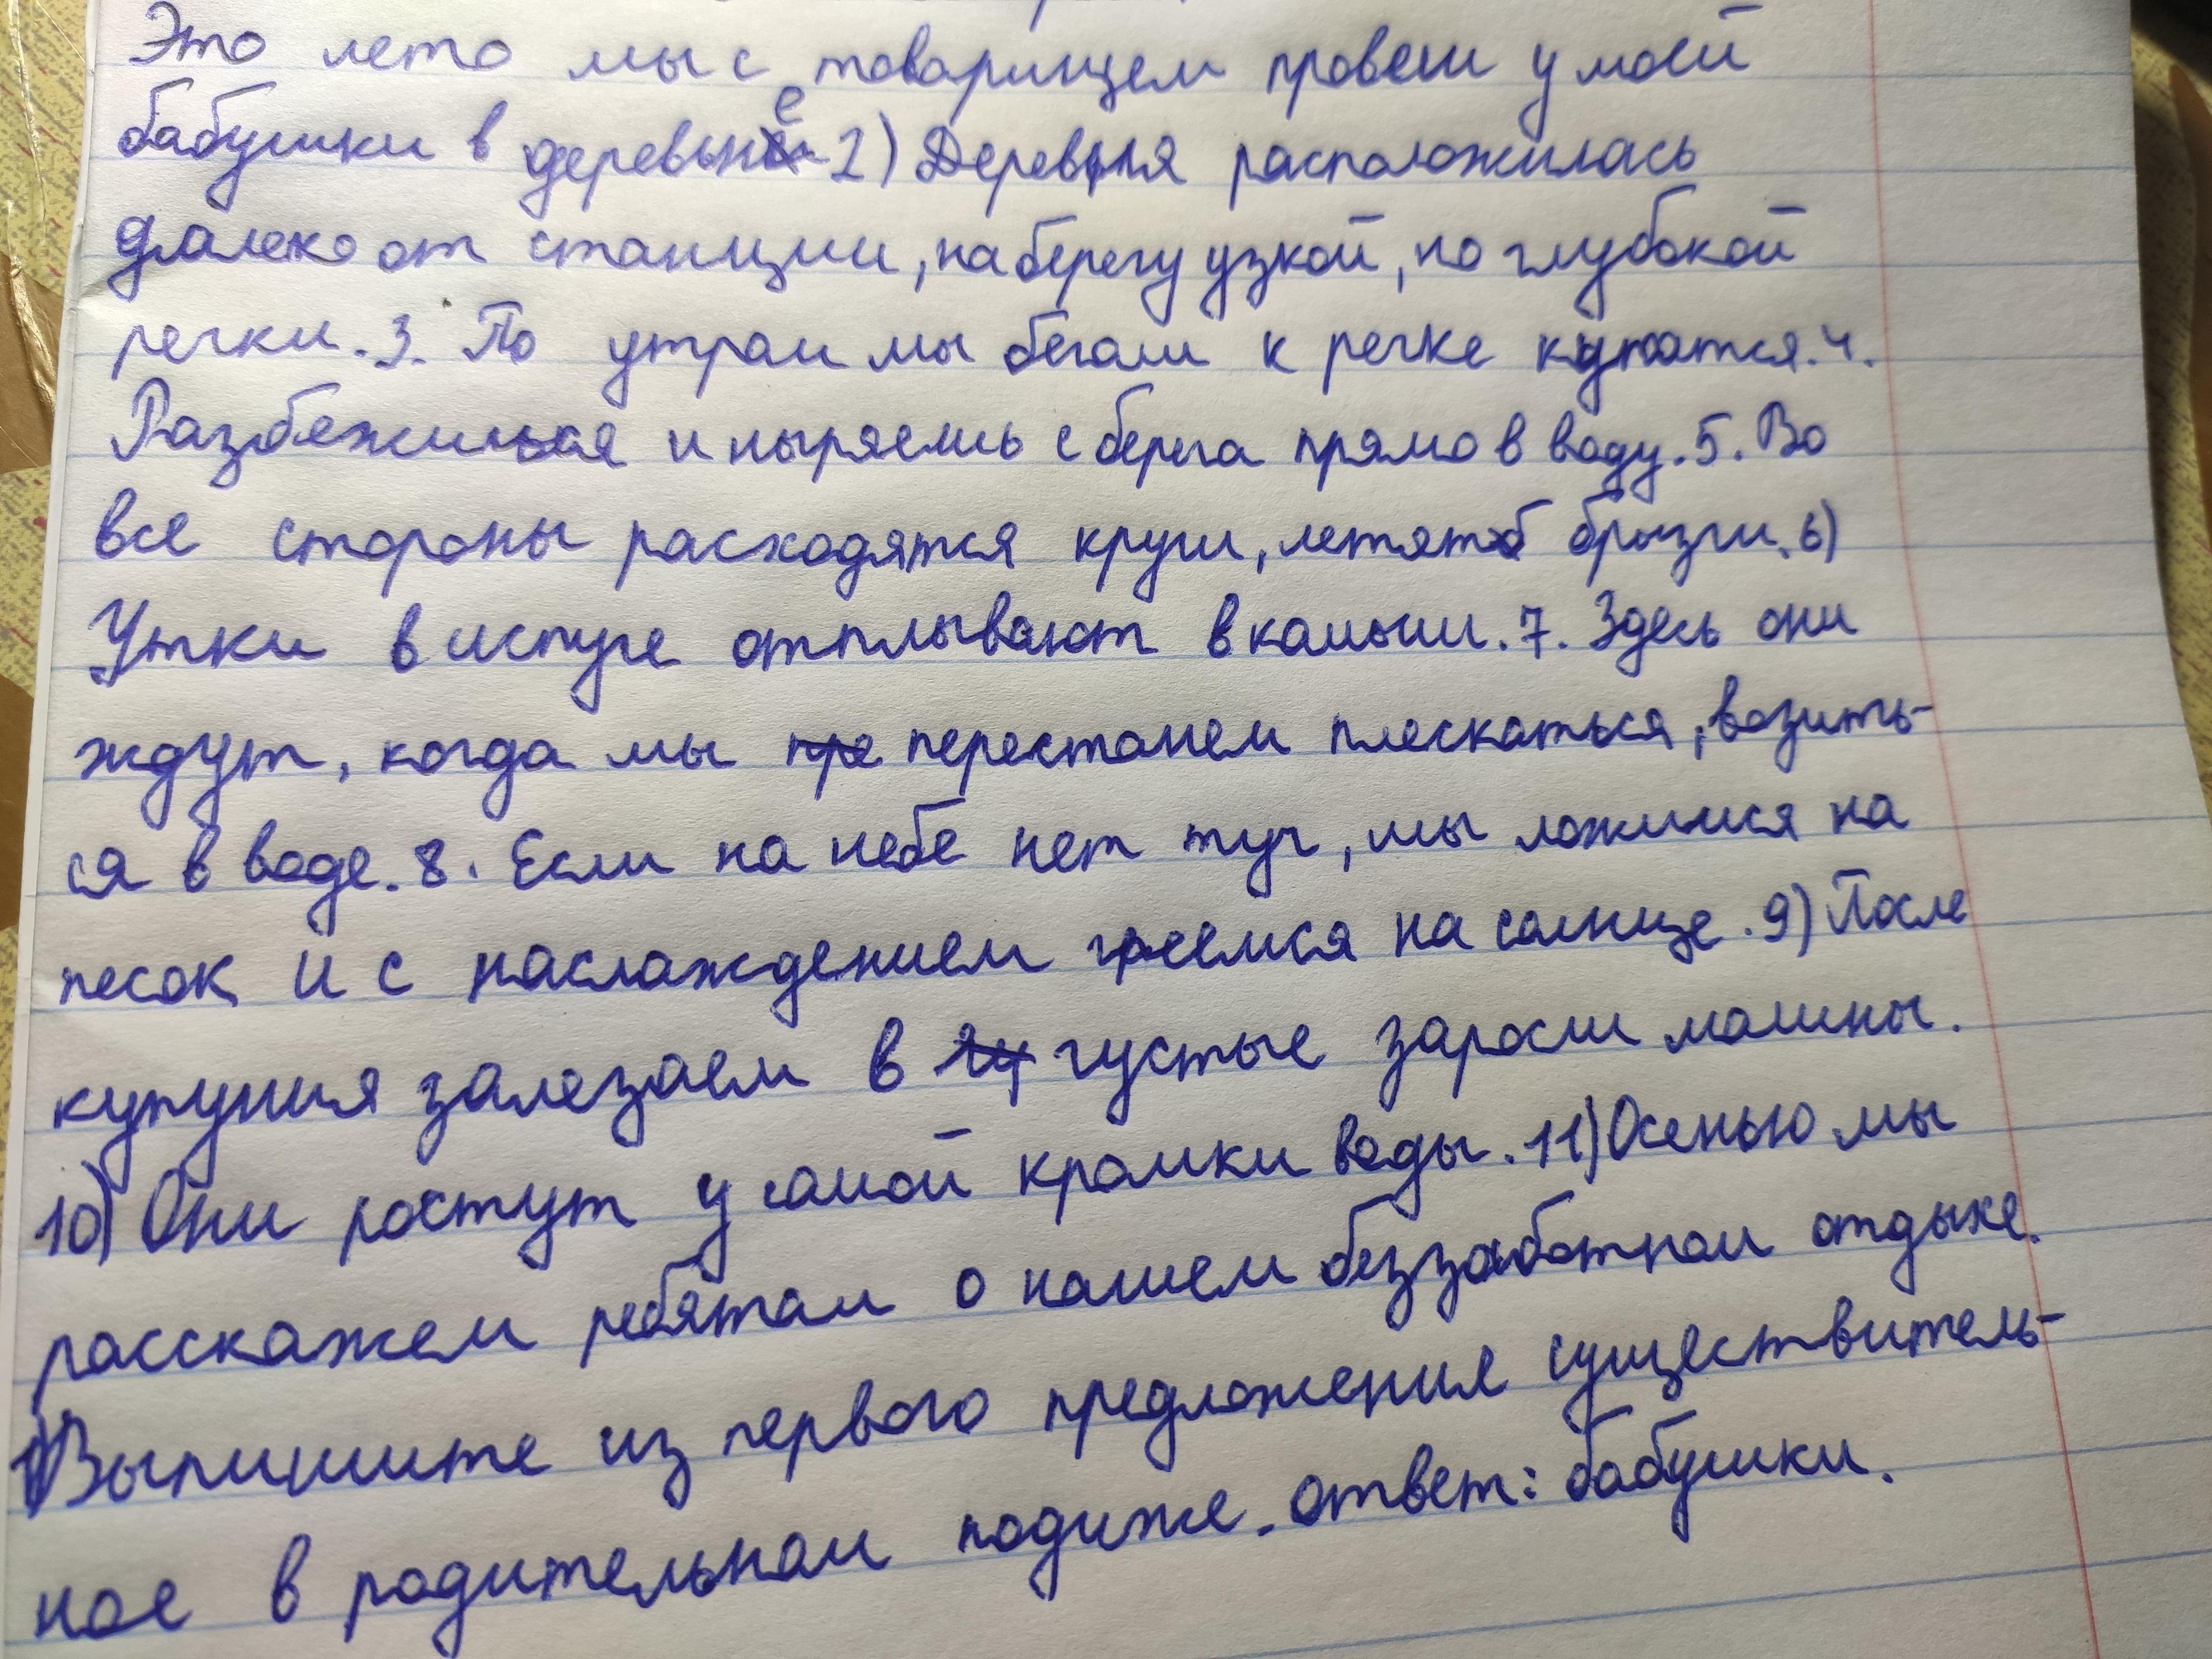 Это лето мы с товарищем провели у моей
бабушки в деревне 2) Деревня расположилась
далеко от станции, на берегу узкой, но глубокой
речки. 3. По утрам мы бегали к речке купатся. 4.
Разбежишься и ныряешь с берега прямо в воду. 5. Во
все стороны расходятся круги, летят брызги. 6)
Утки в испуге отплывают в камыши. 7. Здесь они
ждут, когда мы перестанем плескаться, возить-
ся в воде. 8. Если на небе нет туч, мы ложимся на
песок и с наслаждением греемся на солнце. 9) После
купуния залезаем в густые заросли малины.
10) Они ростут у самой кромки воды. 11) Осенью мы
расскажем ребятам о нашем беззаботном отдыхе.
1) Выпишите из первого предложения существитель-
ное в родительном подиже. ответ: бабушки.